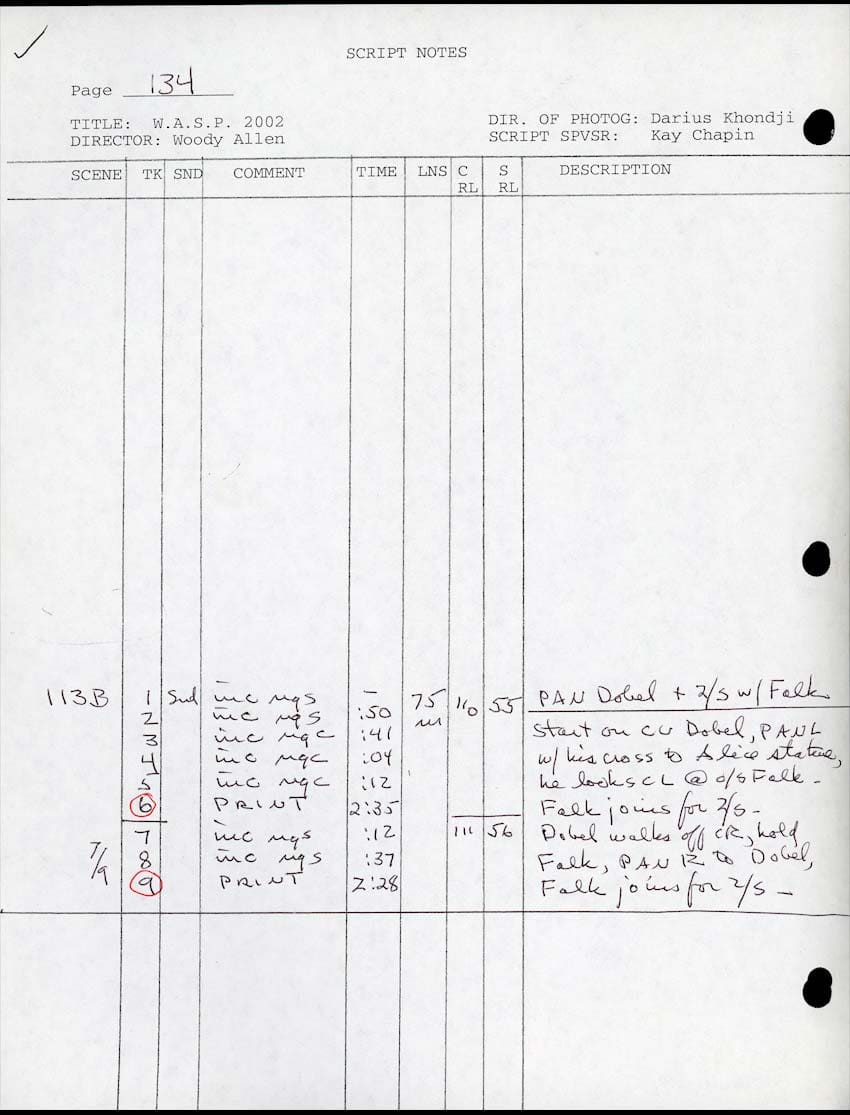 SCRIPT NOTES
Page 134
TITLE: W.A.S.P. 2002 DIR. OF PHOTOG: Darius Khondji
DIRECTOR: Woody Allen SCRIPT SPVSR: Kay Chapin
SCENE TK SND COMMENT TIME LNS C RL S RL DESCRIPTION
113B 1 Snd inc ngs – 75 110 55 PAN Dobel + 2/S w/ Falk
2 inc ngs :50 m
3 inc ngc :41 Start on CU Dobel, PAN L
4 inc ngc :04 w/ his cross to Alice statue,
5 inc ngc :12 he looks CL @ o/s Falk –
6 PRINT 2:35 Falk joins for 2/S –
7 inc ngs :12 111 56 Dobel walks off CR, hold
7/9 8 inc ngs :37 Falk, PAN R to Dobel,
9 PRINT 2:28 Falk joins for 2/S –